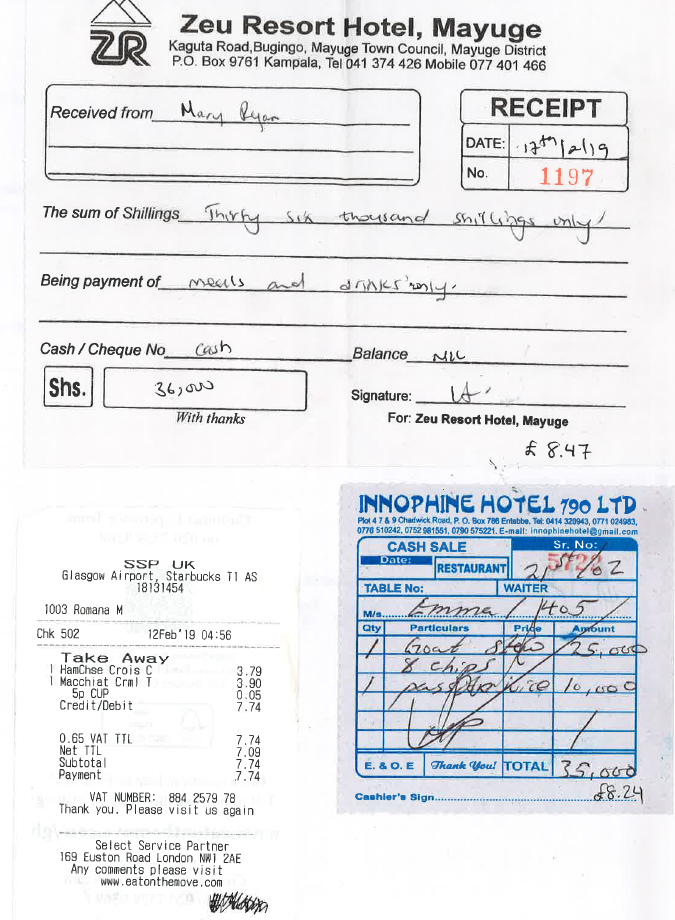 ZR
Zeu Resort Hotel, Mayuge
Kaguta Road,Bugingo, Mayuge Town Council, Mayuge District
P.O. Box 9761 Kampala, Tel 041 374 426 Mobile 077 401 466
Received from Mary Ryan
RECEIPT
DATE: 17th/2/19
No. 1197
The sum of Shillings Thirty six thousand shillings only
Being payment of meals and drinks only.
Cash / Cheque No cash
Balance NIL
Shs. 36,000
With thanks
Signature:
For: Zeu Resort Hotel, Mayuge
£ 8.47
SSP UK
Glasgow Airport, Starbucks T1 AS
18131454
1003 Romana M
Chk 502 12Feb'19 04:56
Take Away
1 HamChse Crois C 3.79
1 Macchiat Crml T 3.90
5p CUP 0.05
Credit/Debit 7.74
0.65 VAT TTL 7.74
Net TTL 7.09
Subtotal 7.74
Payment 7.74
VAT NUMBER: 884 2579 78
Thank you. Please visit us again
Select Service Partner
169 Euston Road London NW1 2AE
Any comments please visit
www.eatonthemove.com
INNOPHINE HOTEL 790 LTD
Plot 4 7 & 9 Chadwick Road, P. O. Box 786 Entebbe. Tel: 0414 320943, 0771 024983,
0776 510242, 0752 981551, 0790 575221. E-mail: innophinehotel@gmail.com
CASH SALE
Sr. No:
5722
Date:
RESTAURANT
21st/02
TABLE No: WAITER
M/s Emma / 405
Qty Particulars Price Amount
1 Goat stew 25,000
& chips
1 passion juice 10,000
E. & O. E Thank You! TOTAL 35,000
£8.24
Cashier's Sign